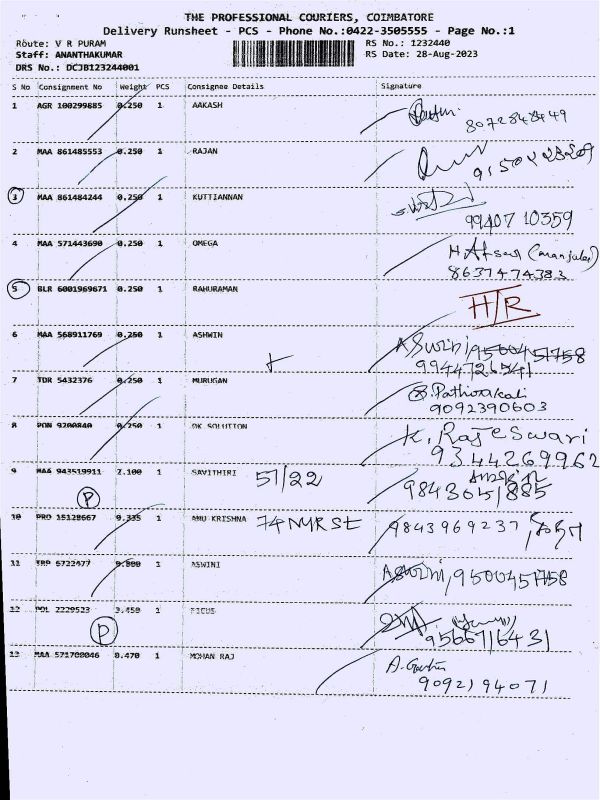 THE PROFESSIONAL COURIERS, COIMBATORE
Delivery Runsheet - PCS - Phone No.:0422-3505555 - Page No.:1
Route: V R PURAM RS No.: 1232440
Staff: ANANTHAKUMAR RS Date: 28-Aug-2023
DRS No.: DCJB123244001
S No Consignment No Weight PCS Consignee Details Signature
1 AGR 100299885 0.250 1 AAKASH
8072848449
2 MAA 861485553 0.250 1 RAJAN
3 MAA 861484244 0.250 1 KUTTIANNAN
99407 10359
4 MAA 571443690 0.250 1 OMEGA
8637474383
5 BLR 6001969671 0.250 1 RAHURAMAN
H/R
6 MAA 568911769 0.250 1 ASHWIN ASwini
7 TDR 5432376 0.250 1 MURUGAN
9092390603
8 PON 9200840 0.250 1 DK SOLUTION K. RajeSwari
9344269962
9 MAA 943519911 2.100 1 SAVITHIRI 51/22
P 9843051885
10 PRO 15128667 9.335 1 ANU KRISHNA 74 NVR ST 9843969237
11 TRP 6722477 9.800 1 ASWINI ASwini, 9500451758
12 POL 2229523 3.450 1 FICUS
P 9566716431
13 MAA 571700046 0.470 1 MOHAN RAJ
9092194071